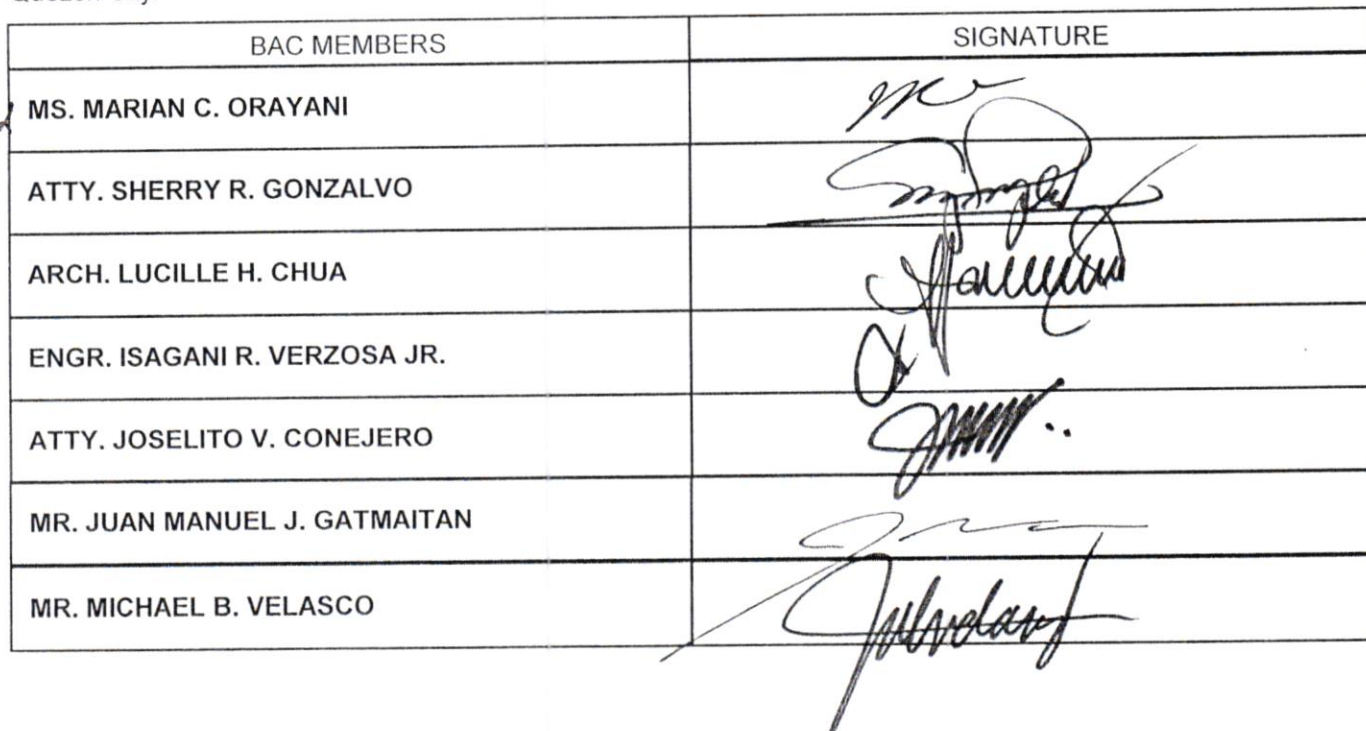 BAC MEMBERS SIGNATURE
MS. MARIAN C. ORAYANI
ATTY. SHERRY R. GONZALVO
ARCH. LUCILLE H. CHUA
ENGR. ISAGANI R. VERZOSA JR.
ATTY. JOSELITO V. CONEJERO
MR. JUAN MANUEL J. GATMAITAN
MR. MICHAEL B. VELASCO